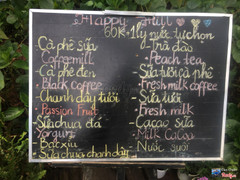 Happy Hill
66K - 1 ly nước tự chọn
- Cà phê sữa
Coffee milk
- Cà phê đen
Black coffee
- Chanh dây tươi
Passion Fruit
- Sữa chua đá
Yogurt
- Bacxiu
- Sữa chua chanh dây
- Trà đào
Peach tea
- Sữa tươi cà phê
Fresh milk coffee
- Sữa tươi
Fresh milk
- Cacao sữa
Milk Cacao
- Nước suối